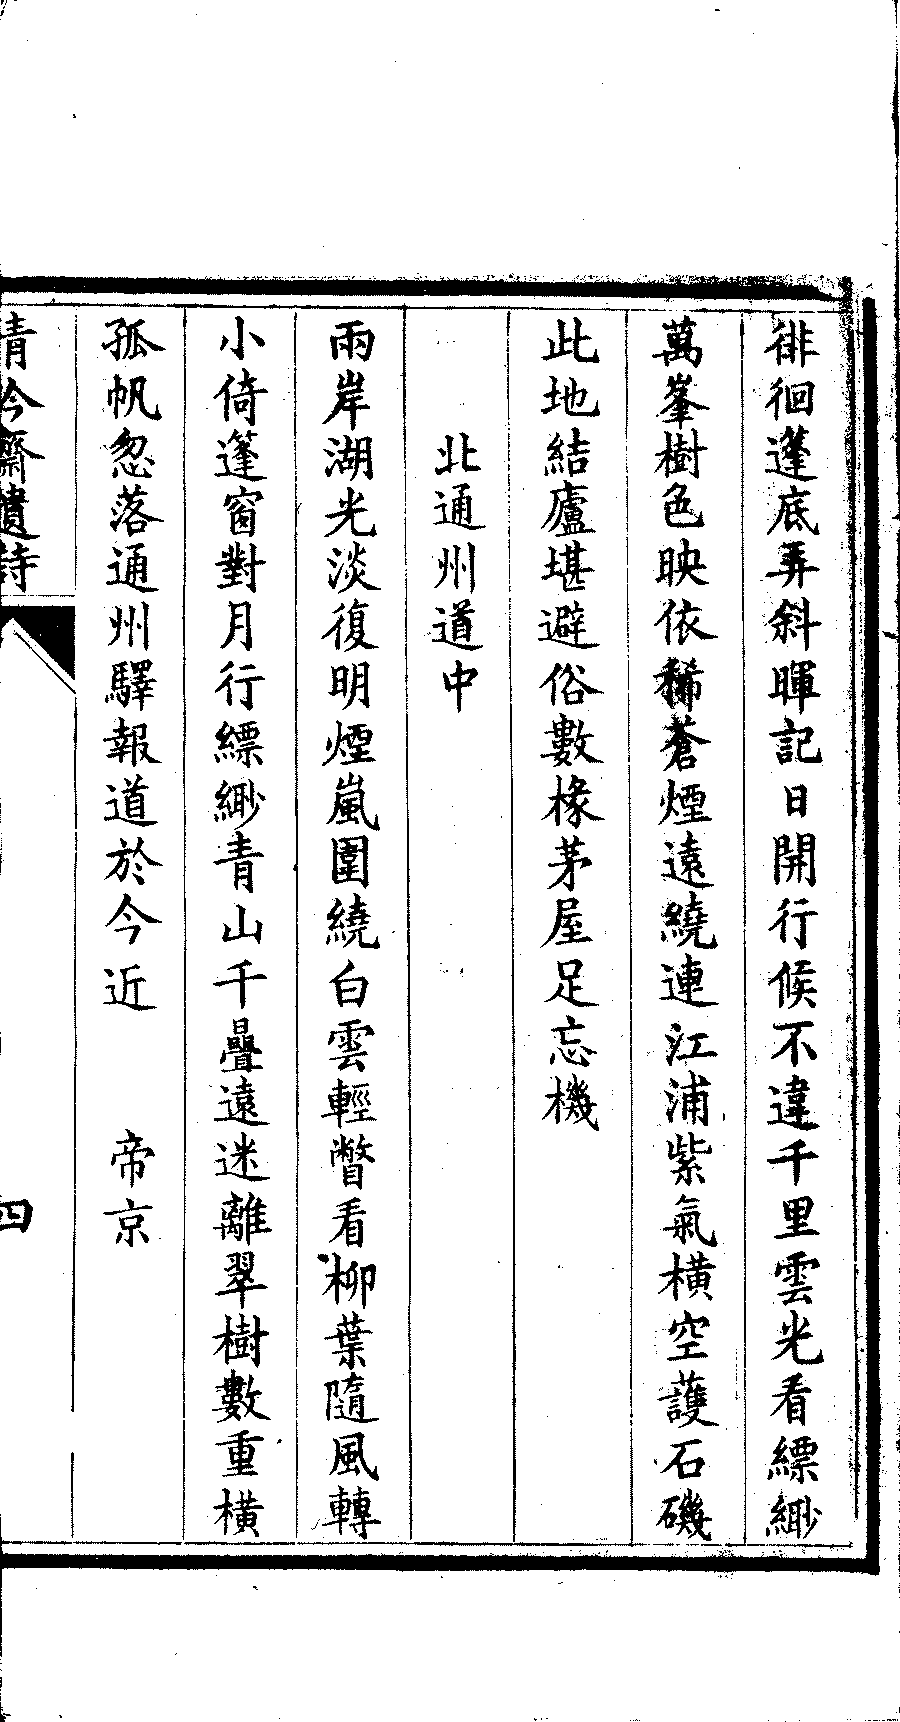 徘徊蓬底弄斜暉記日開行候不違千里雲光看縹緲
萬峯樹色映依稀蒼煙遠繞連江浦紫氣橫空護石磯
此地結廬堪避俗數椽茅屋足忘機
北通州道中
兩岸湖光淡復明煙嵐圍繞白雲輕瞥看柳葉隨風轉
小倚蓬窗對月行縹緲青山千疊遠迷離翠樹數重橫
孤帆忽落通州驛報道於今近 帝京
青吟齋遺詩
四